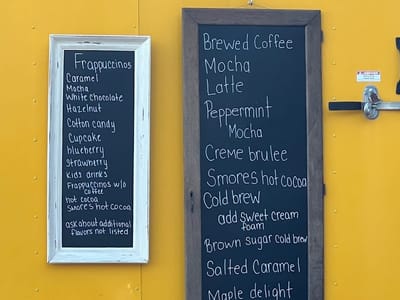 Frappuccinos
Caramel
Mocha
White Chocolate
Hazelnut
Cotton candy
Cupcake
blueberry
Strawberry
Kids drinks
Frappuccinos w/o
coffee
hot cocoa
Smores hot cocoa
ask about additional
flavors not listed
Brewed Coffee
Mocha
Latte
Peppermint
Mocha
Creme brulee
Smores hot cocoa
Cold brew
add sweet cream
foam
Brown sugar cold brew
Salted Caramel
Maple delight